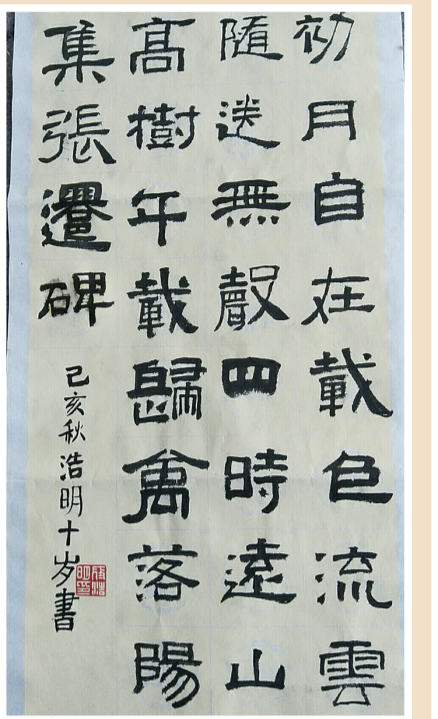 初月自在載色流雲
隨送無聲四時遠山
髙樹午載歸禽落陽
集張遷碑
己亥秋浩明十岁書